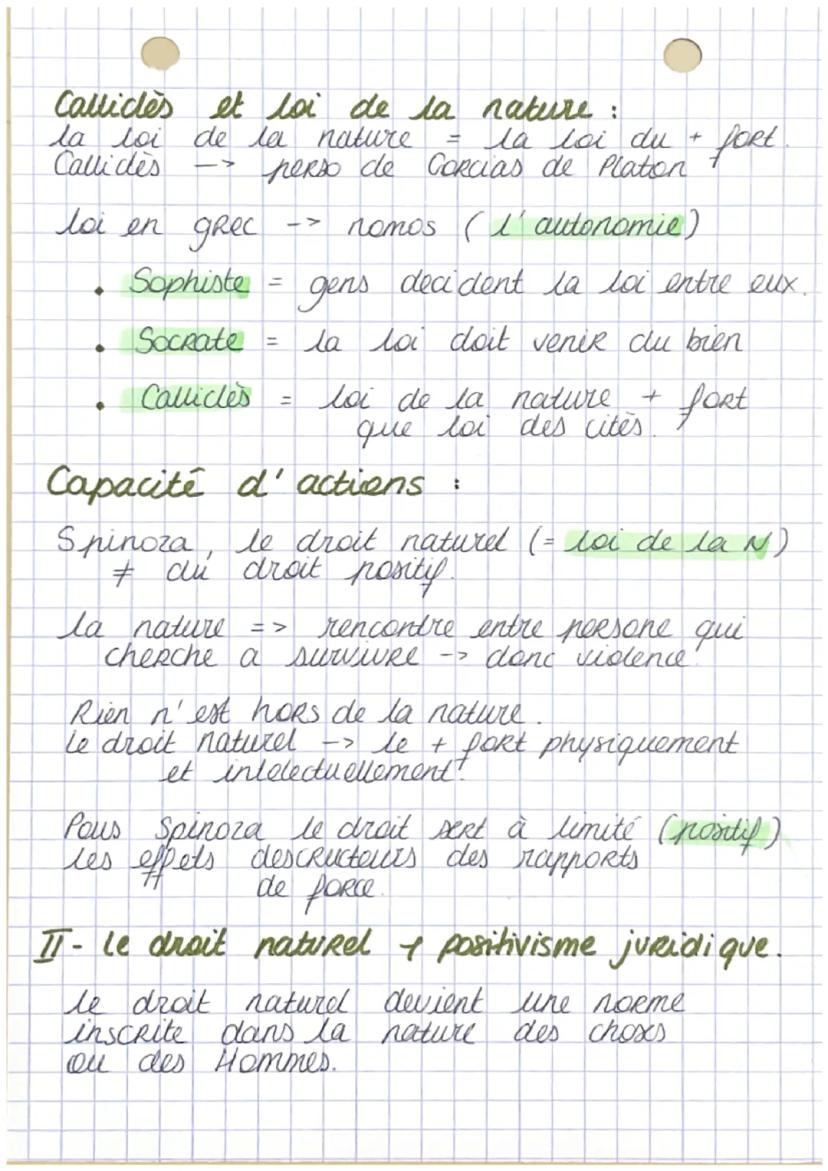 Calliclès et loi de la nature :
la loi de la nature = la loi du + fort.
Calliclès --> perso de Gorgias de Platon
loi en grec --> nomos (l'autonomie)
• Sophiste = gens decident la loi entre eux.
• Socrate = la loi doit venir du bien
• Calliclès = loi de la nature + fort
que loi des cités.
Capacité d'actions :
Spinoza, le droit naturel (= loi de la N)
≠ du droit positif.
la nature => rencontre entre persone qui
cherche a survivre -> donc violence
Rien n'est hors de la nature.
Le droit naturel --> le + fort physiquement
et intelectuellement.
Pour Spinoza le droit sert à limité (positif)
les effets descructeurs des rapports
de force.
II- Le droit naturel + positivisme juridique.
le droit naturel devient une norme
inscrite dans la nature des choses
ou des Hommes.